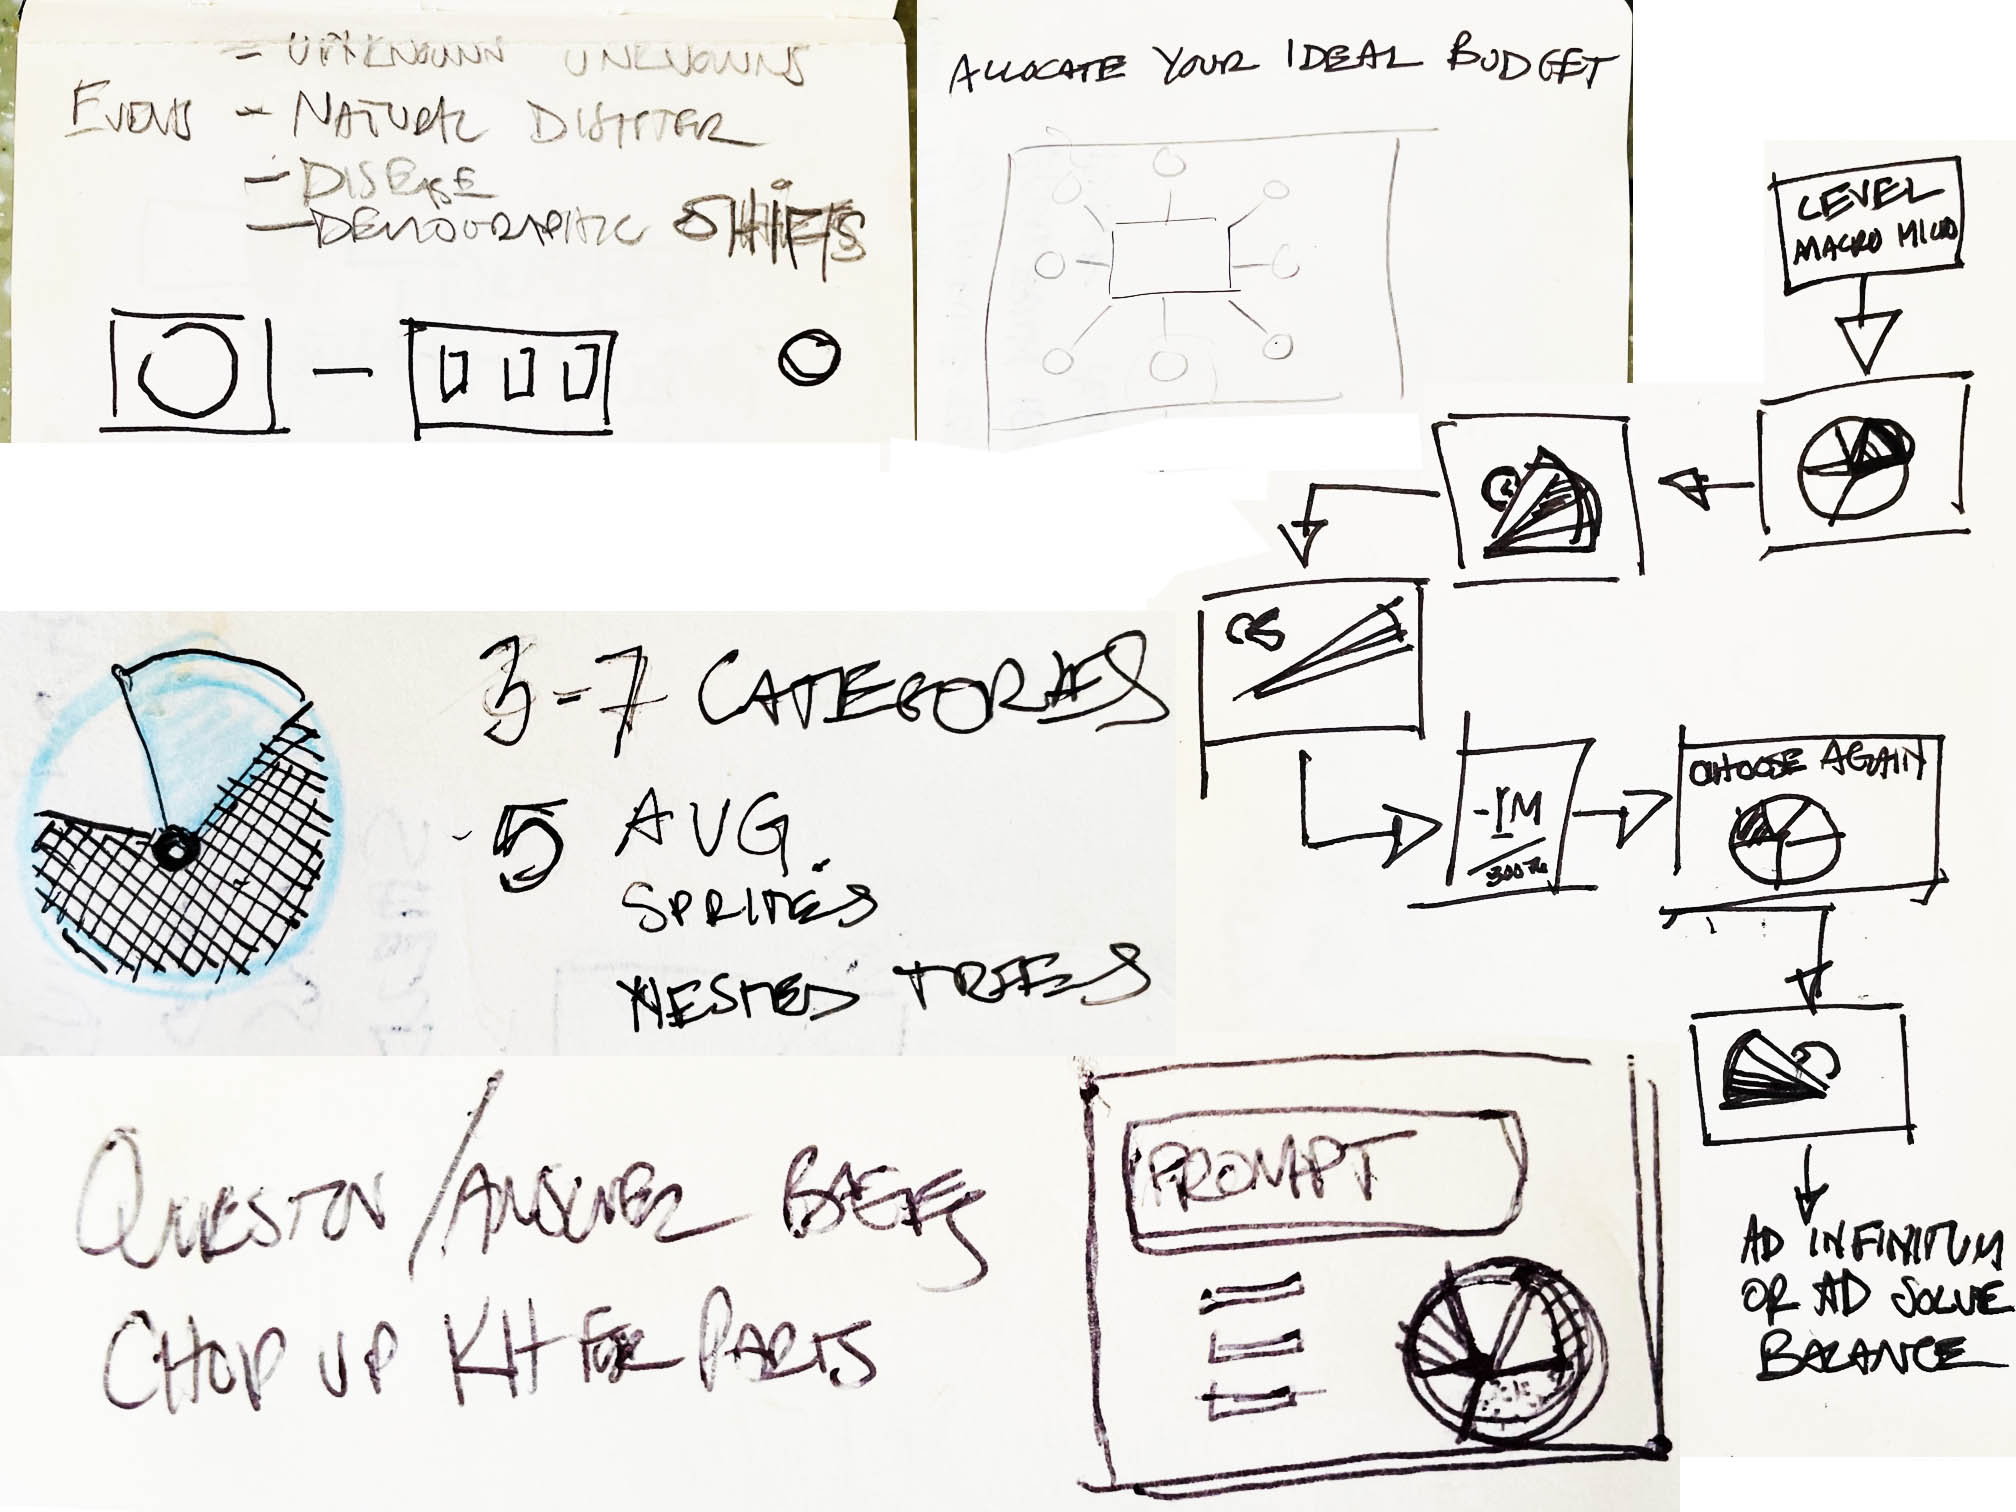 - UNKNOWN UNKNOWNS
EVENTS - NATURAL DISASTER
- DISEASE
- DEMOGRAPHIC SHIFTS
ALLOCATE YOUR IDEAL BUDGET
LEVEL
MACRO MICRO
3-7 CATEGORIES
5 AVG.
SPRITES
NESTED TREES
-1M
CHOOSE AGAIN
AD INFINITUM
OR AD SOLVE
BALANCE
QUESTION/ANSWER
CHOP UP KH FOR PARTS
PROMPT